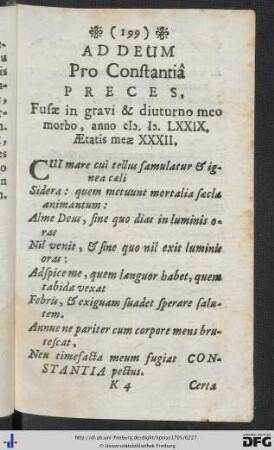 (199)
AD DEUM
Pro Constantiâ
PRECES,
Fusæ in gravi & diuturno meo
morbo, anno cIɔ. Iɔ. LXXIX.
Ætatis meæ XXXII.
CUI mare cui tellus famulatur & ig-
nea cæli
Sidera: quem metuunt mortalia sæcla
animantum:
Alme Deus, sine quo dias in luminis o-
ras
Nil venit, & sine quo nil exit luminis
oras:
Adspice me, quem languor habet, quem
tabida vexat
Febris, & exiguam suadet sperare salu-
tem.
Annue ne pariter cum corpore mens bru-
tescat,
Neu timefacta meum fugiat CON-
STANTIA pectus.
K 4 Certa
http://dl.ub.uni-freiburg.de/diglit/lipsius1705/0227
© Universitätsbibliothek Freiburg
gefördert durch die
DFG